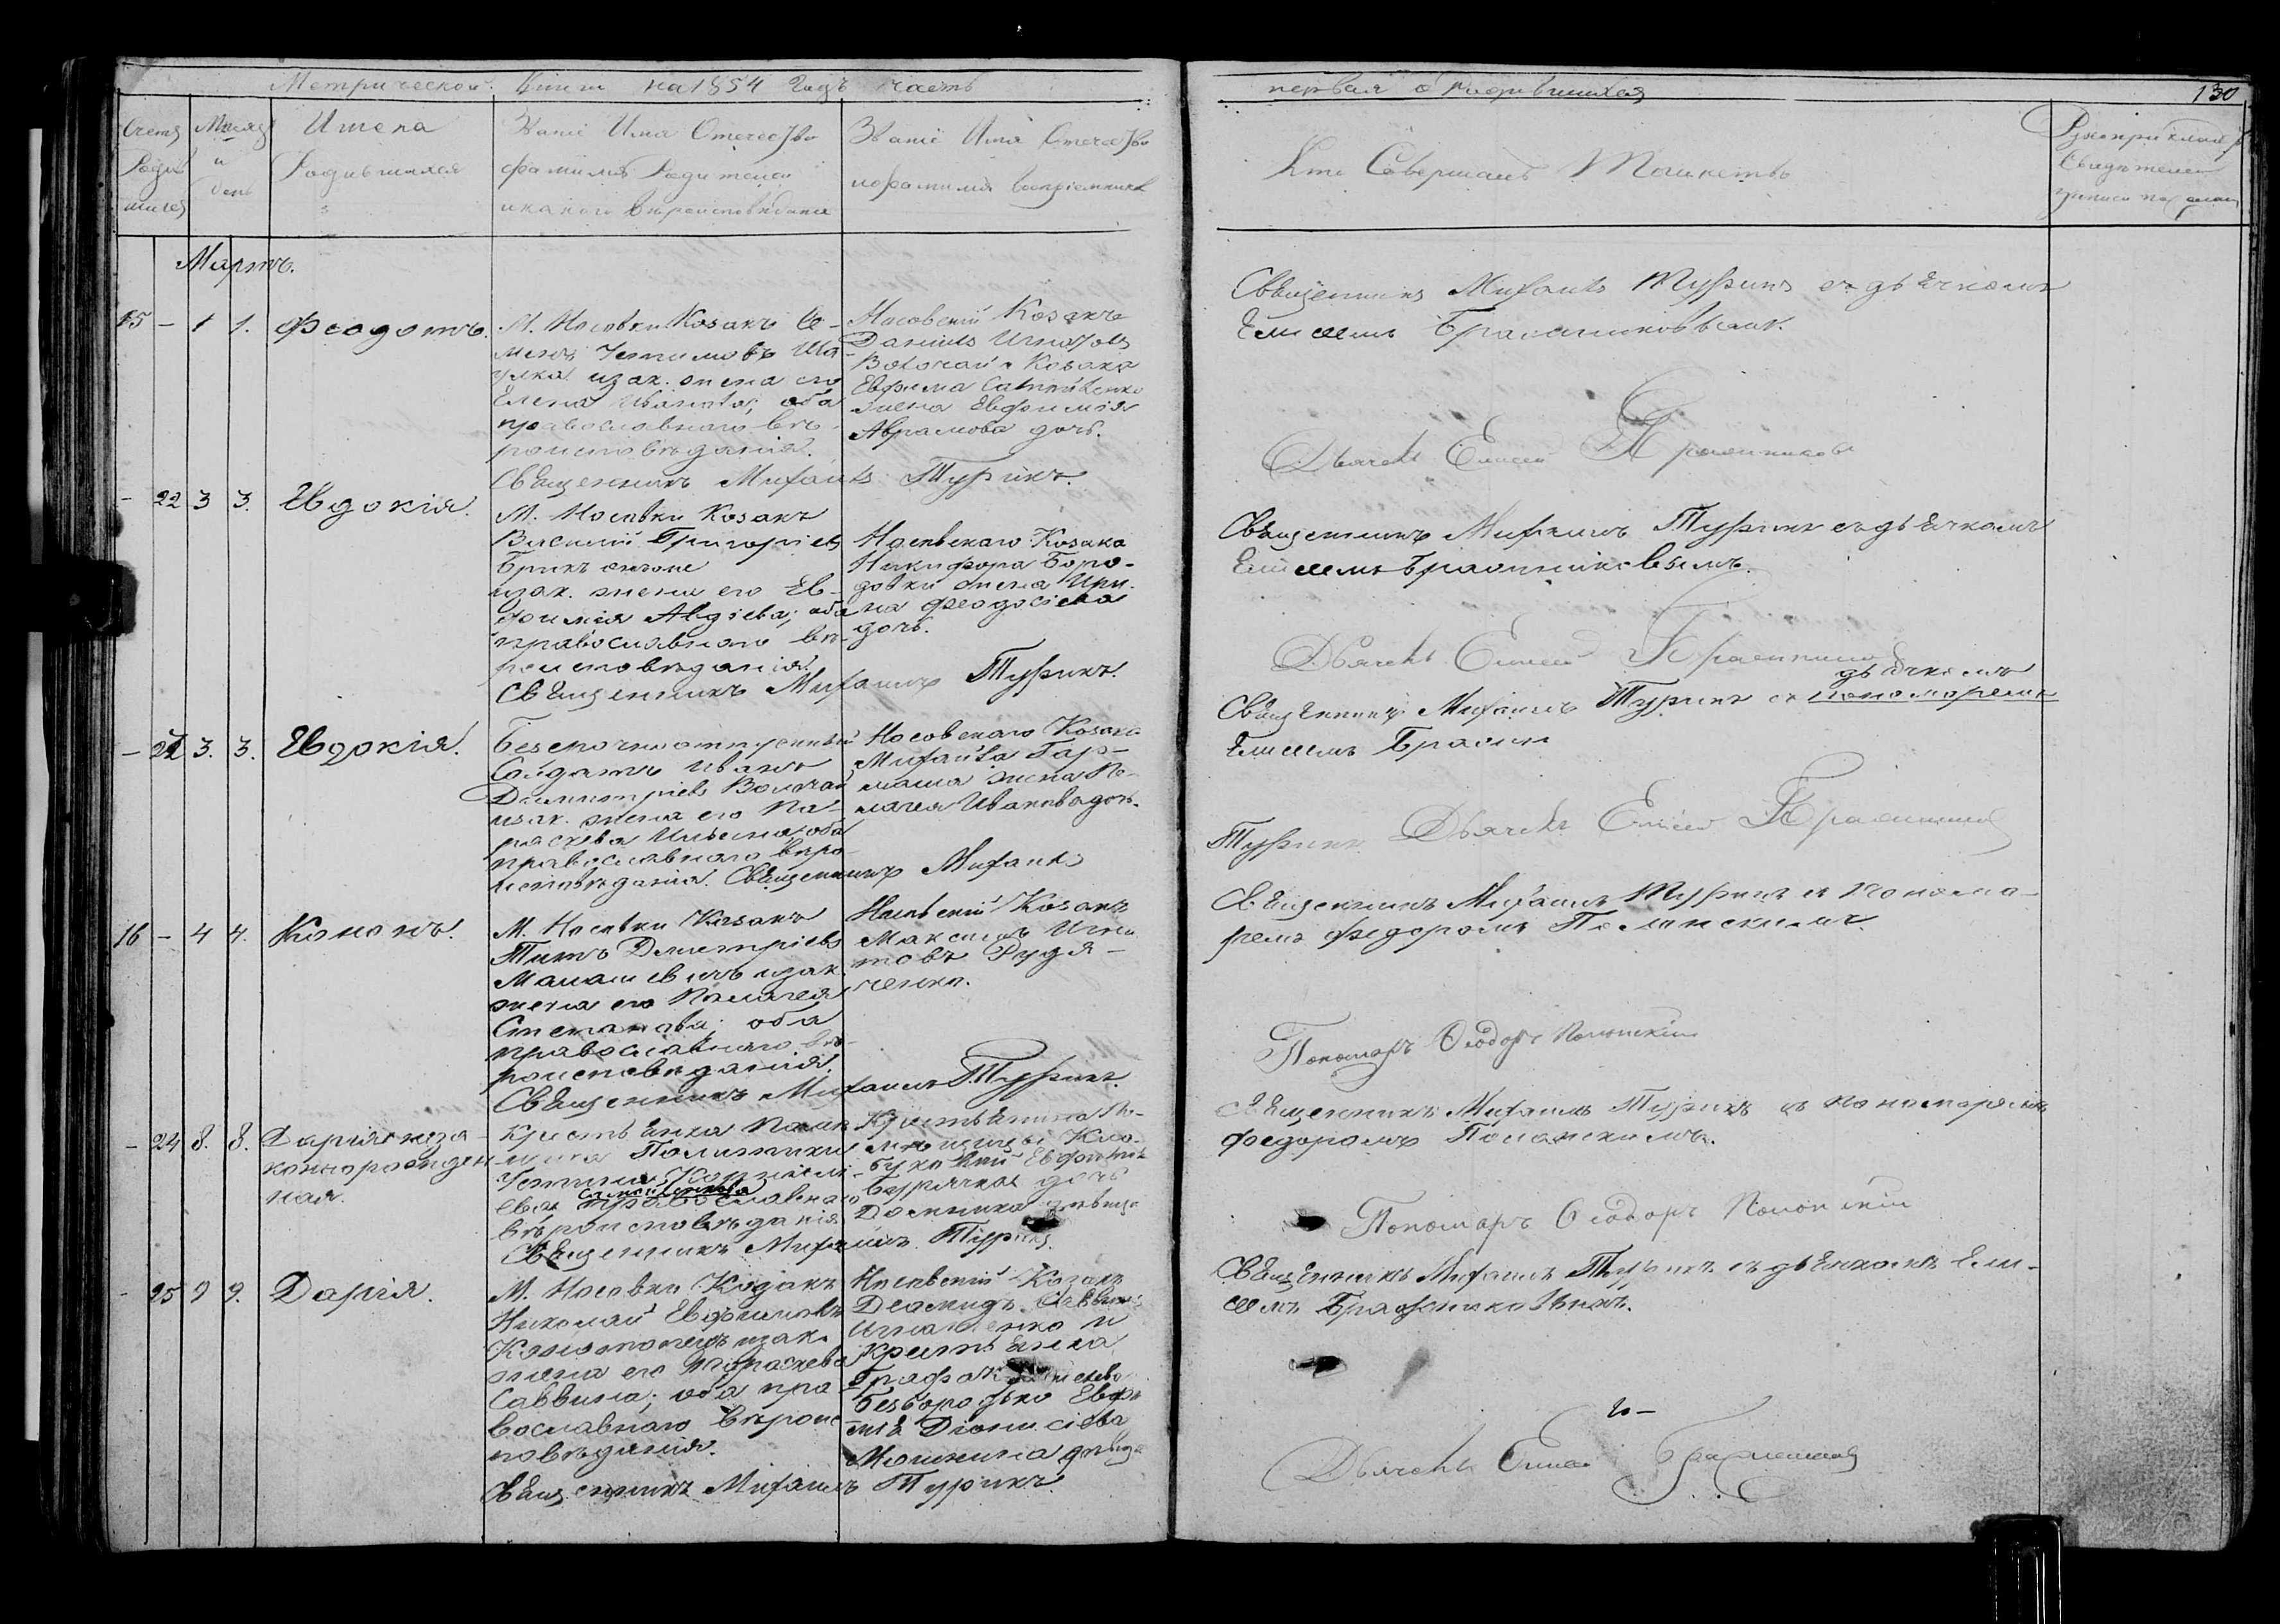 Метрической Книги на 1854 Годъ часть
первая о Родившихся
130
Счетъ Родившихся
Месяцъ и день
Имена
Родившихся
Званіе Имя Отечество
фамилія Родителей
и какого вѣроисповѣданія
Званіе Имя Отечество
и фамилія воспріемниковъ
Кто Совершалъ Таинство
Рукоприкладство
Свидетелей
записи по желанію
Мартъ.
15 – 1 1. Феодотъ.
М. Носовки Козакъ Се-
менъ
и зак. жена его
Елена Иванова; оба
православнаго вѣ-
роисповѣданія.
Носовскій Козакъ
Даніилъ Игнатовъ
Волочай и Козака
Евфима
жена Евфимія
Аврамова дочь.
Священникъ Михаилъ Турикъ.
Священникъ Михаилъ Турикъ съ дьячкомъ
Елисеемъ Бражниковымъ.
Дьячекъ Елисей Бражниковъ
– 22 3 3. Евдокія.
М. Носовки Козакъ
Василій Григоріевъ
Брикъ
изак. жена его Ев-
фимія Авдіева; оба
православнаго вѣ-
роисповѣданія.
Носовскаго Козака
Никифора Боро-
довки жена Ири-
на Феодосіева
дочь.
Священникъ Михаилъ Турикъ.
Священникъ Михаилъ Турикъ съ дьячкомъ
Елисеемъ Бражниковымъ.
Дьячекъ Елисей Бражниковъ
– 23 3. 3. Евдокія.
Безсрочноотпускный
Солдатъ Иванъ
Димитріевъ Волочай
изак. жена его Па-
раскева Ильина; оба
православнаго вѣро-
исповѣданія. Священникъ Михаилъ
Турикъ
Носовскаго Козака
Михаила Гар-
маша жена Пе-
лагея Иванова дочь.
дьячкомъ
Священникъ Михаилъ Турикъ съ пономаремъ
Елисеемъ Бражник
Дьячекъ Елисей Бражниковъ
16 – 4 4. Кононъ.
М. Носовки Козакъ
Титъ Димитріевъ
Манашевичъ изак.
жена его Пелагея
Степанова; оба
православнаго вѣ-
роисповѣданія.
Носовскій Козакъ
Максимъ Игна-
товъ Рудя-
ченко.
Священникъ Михаилъ Турикъ.
Священникъ Михаилъ Турикъ съ Понома-
ремъ Федоромъ Полонскимъ.
Пономарь Ѳеодоръ Полонскій
– 24 8. 8. Дарія неза-
коннорожден-
ная.
Крестьянка
православнаго
вѣроисповѣданія
Крестьянина По-
Евфимія
дочь
Домника дѣвица
Священникъ Михаилъ Турикъ.
Священникъ Михаилъ Турикъ съ пономаремъ
Федоромъ Полонскимъ.
Пономарь Ѳеодоръ Полонскій
– 25 9 9. Дарія.
М. Носовки Козакъ
Николай Евфимовъ
изак.
жена его Параскева
Саввина; оба пра-
вославнаго вѣроис-
повѣданія.
Носовскій Козакъ
Деомидъ
Игнатенко и
крестьянка
Графа
Безбородько Евфи-
мія Діонисіева
дѣвица
Священникъ Михаилъ Турикъ.
Священникъ Михаилъ Турикъ съ дьячкомъ Ели-
сеемъ Бражниковымъ.
Дьячекъ Елисей Бражниковъ